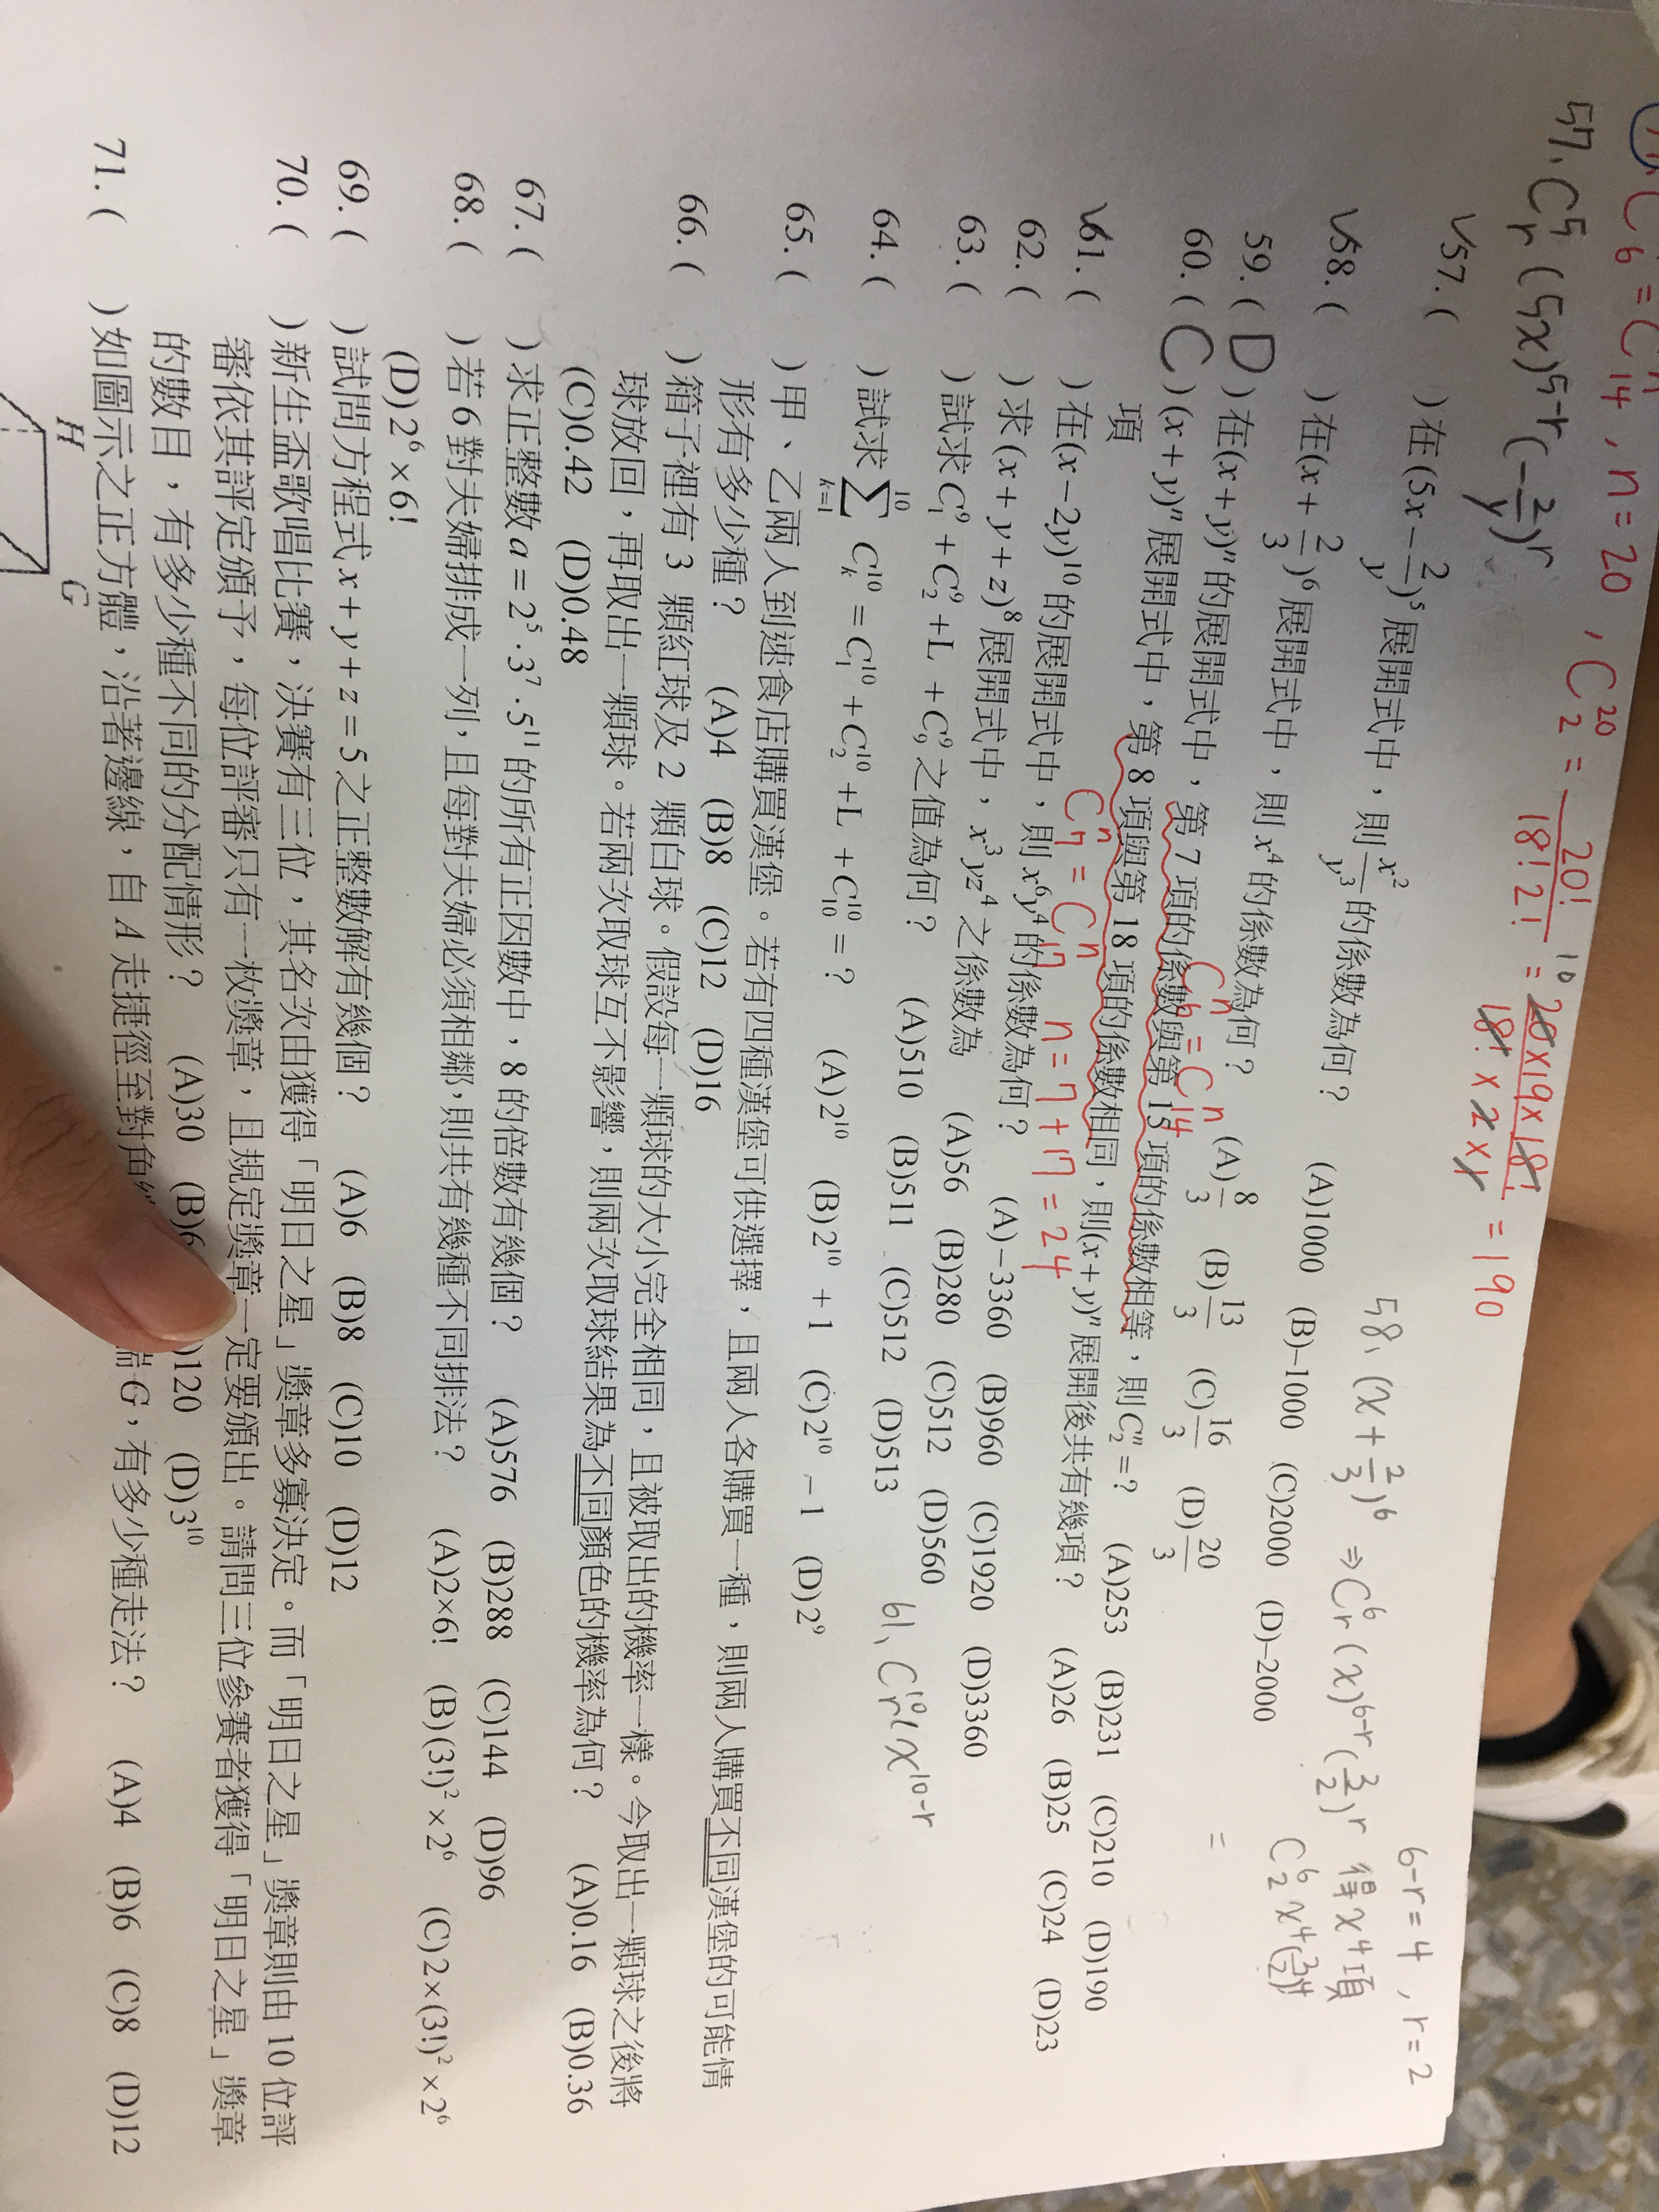 C 6 = C 14 , n = 20 , C²⁰₂ = 20! / 18! 2! = 20×19×18! / 18! × 2 × 1 = 190
10
57、C⁵ᵣ (5x)⁵⁻ʳ (-2/y)ʳ
58、(x + 2/3)⁶ ⇒ C⁶ᵣ (x)⁶⁻ʳ (3/2)ʳ 得 x⁴ 項
6-r=4 , r=2
C⁶₂ x⁴
=
✓57. ( ) 在(5x-2/y)⁵展開式中,則x²/y³的係數為何? (A)1000 (B)-1000 (C)2000 (D)-2000
✓58. ( ) 在(x+2/3)⁶展開式中,則x⁴的係數為何? (A)8/3 (B)13/3 (C)16/3 (D)20/3
59. ( D ) 在(x+y)ⁿ的展開式中,第7項的係數與第15項的係數相等,則Cⁿ₂=? (A)253 (B)231 (C)210 (D)190
Cⁿ₆ = Cⁿ₁₄
60. ( C ) (x+y)ⁿ展開式中,第8項與第18項的係數相同,則(x+y)ⁿ展開後共有幾項? (A)26 (B)25 (C)24 (D)23
項
Cⁿ₇ = Cⁿ₁₇ n=7+17=24
✓61. ( ) 在(x-2y)¹⁰的展開式中,則x⁶y⁴的係數為何? (A)-3360 (B)960 (C)1920 (D)3360
62. ( ) 求(x+y+z)⁸展開式中,x³yz⁴之係數為 (A)56 (B)280 (C)512 (D)560
63. ( ) 試求C⁹₁+C⁹₂+L+C⁹₉之值為何? (A)510 (B)511 (C)512 (D)513
61、C¹⁰ᵣ (x¹⁰⁻ʳ
64. ( ) 試求∑¹⁰ₖ₌₁ C¹⁰ₖ=C¹⁰₁+C¹⁰₂+L+C¹⁰₁₀=? (A)2¹⁰ (B)2¹⁰+1 (C)2¹⁰-1 (D)2⁹
65. ( ) 甲、乙兩人到速食店購買漢堡。若有四種漢堡可供選擇,且兩人各購買一種,則兩人購買不同漢堡的可能情
形有多少種? (A)4 (B)8 (C)12 (D)16
66. ( ) 箱子裡有3顆紅球及2顆白球。假設每一顆球的大小完全相同,且被取出的機率一樣。今取出一顆球之後將
球放回,再取出一顆球。若兩次取球互不影響,則兩次取球結果為不同顏色的機率為何? (A)0.16 (B)0.36
(C)0.42 (D)0.48
67. ( ) 求正整數a=2⁵·3⁷·5¹¹的所有正因數中,8的倍數有幾個? (A)576 (B)288 (C)144 (D)96
68. ( ) 若6對夫婦排成一列,且每對夫婦必須相鄰,則共有幾種不同排法? (A)2×6! (B)(3!)²×2⁶ (C)2×(3!)²×2⁶
(D)2⁶×6!
69. ( ) 試問方程式x+y+z=5之正整數解有幾個? (A)6 (B)8 (C)10 (D)12
70. ( ) 新生盃歌唱比賽,決賽有三位,其名次由獲得「明日之星」獎章多寡決定。而「明日之星」獎章則由10位評
審依其評定頒予,每位評審只有一枚獎章,且規定獎章一定要頒出。請問三位參賽者獲得「明日之星」獎章
的數目,有多少種不同的分配情形? (A)30 (B)6 )120 (D)3¹⁰
71. ( ) 如圖示之正方體,沿著邊線,自A走捷徑至對角 端G,有多少種走法? (A)4 (B)6 (C)8 (D)12
H
G